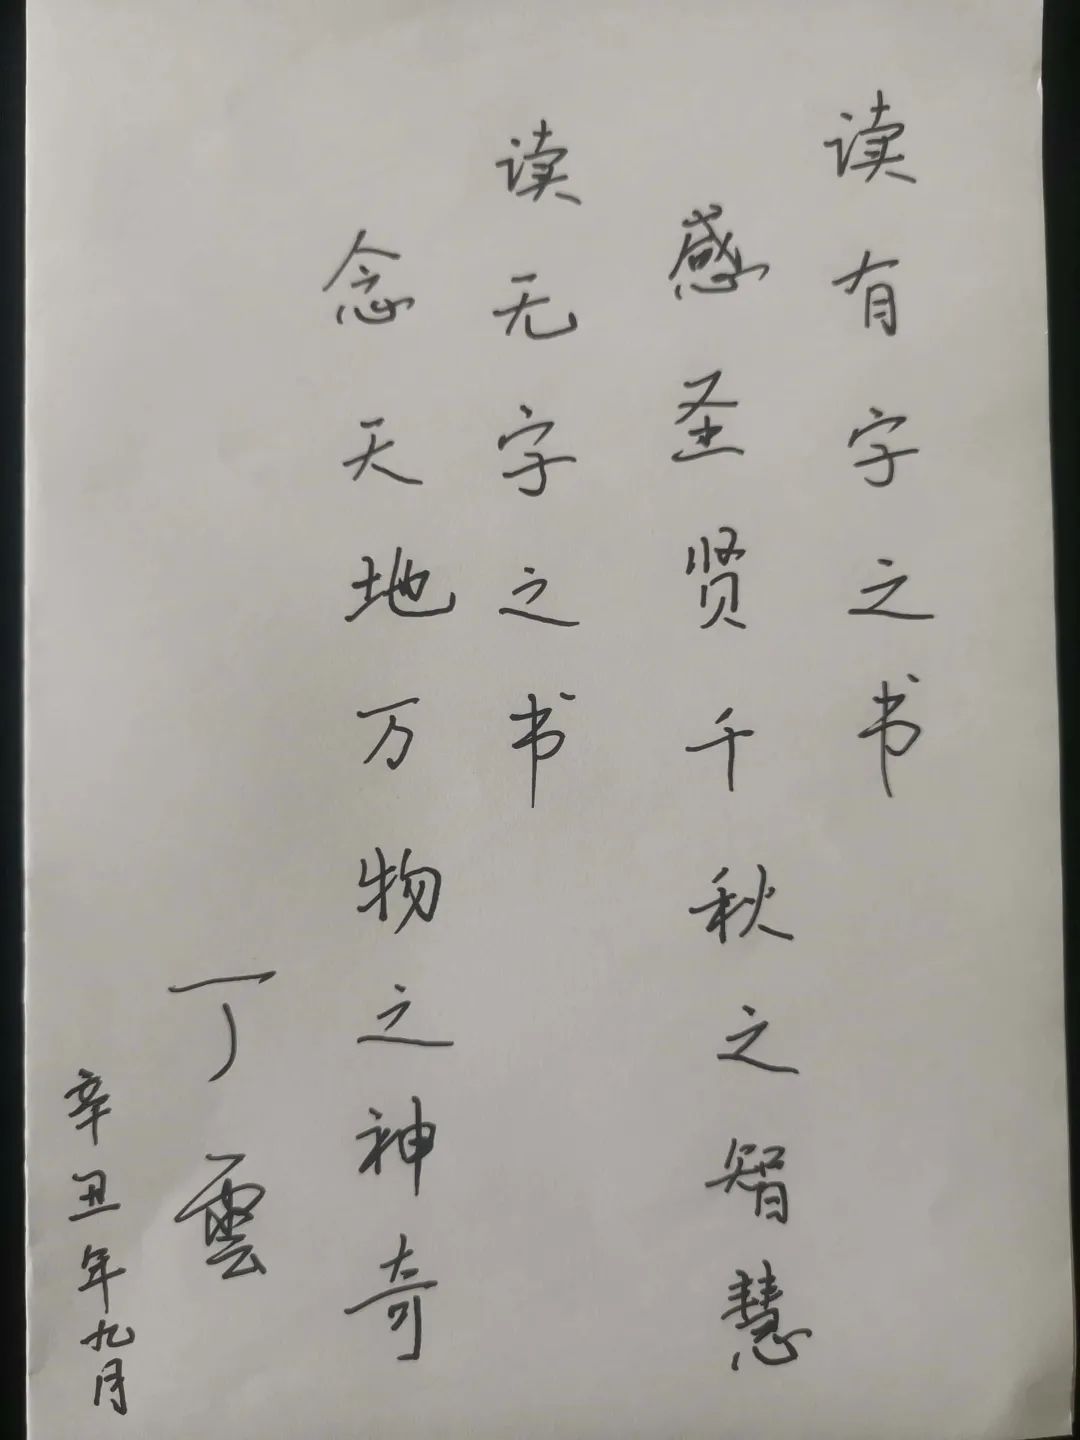 读有字之书
感圣贤千秋之智慧
读无字之书
念天地万物之神奇
丁雲
辛丑年九月